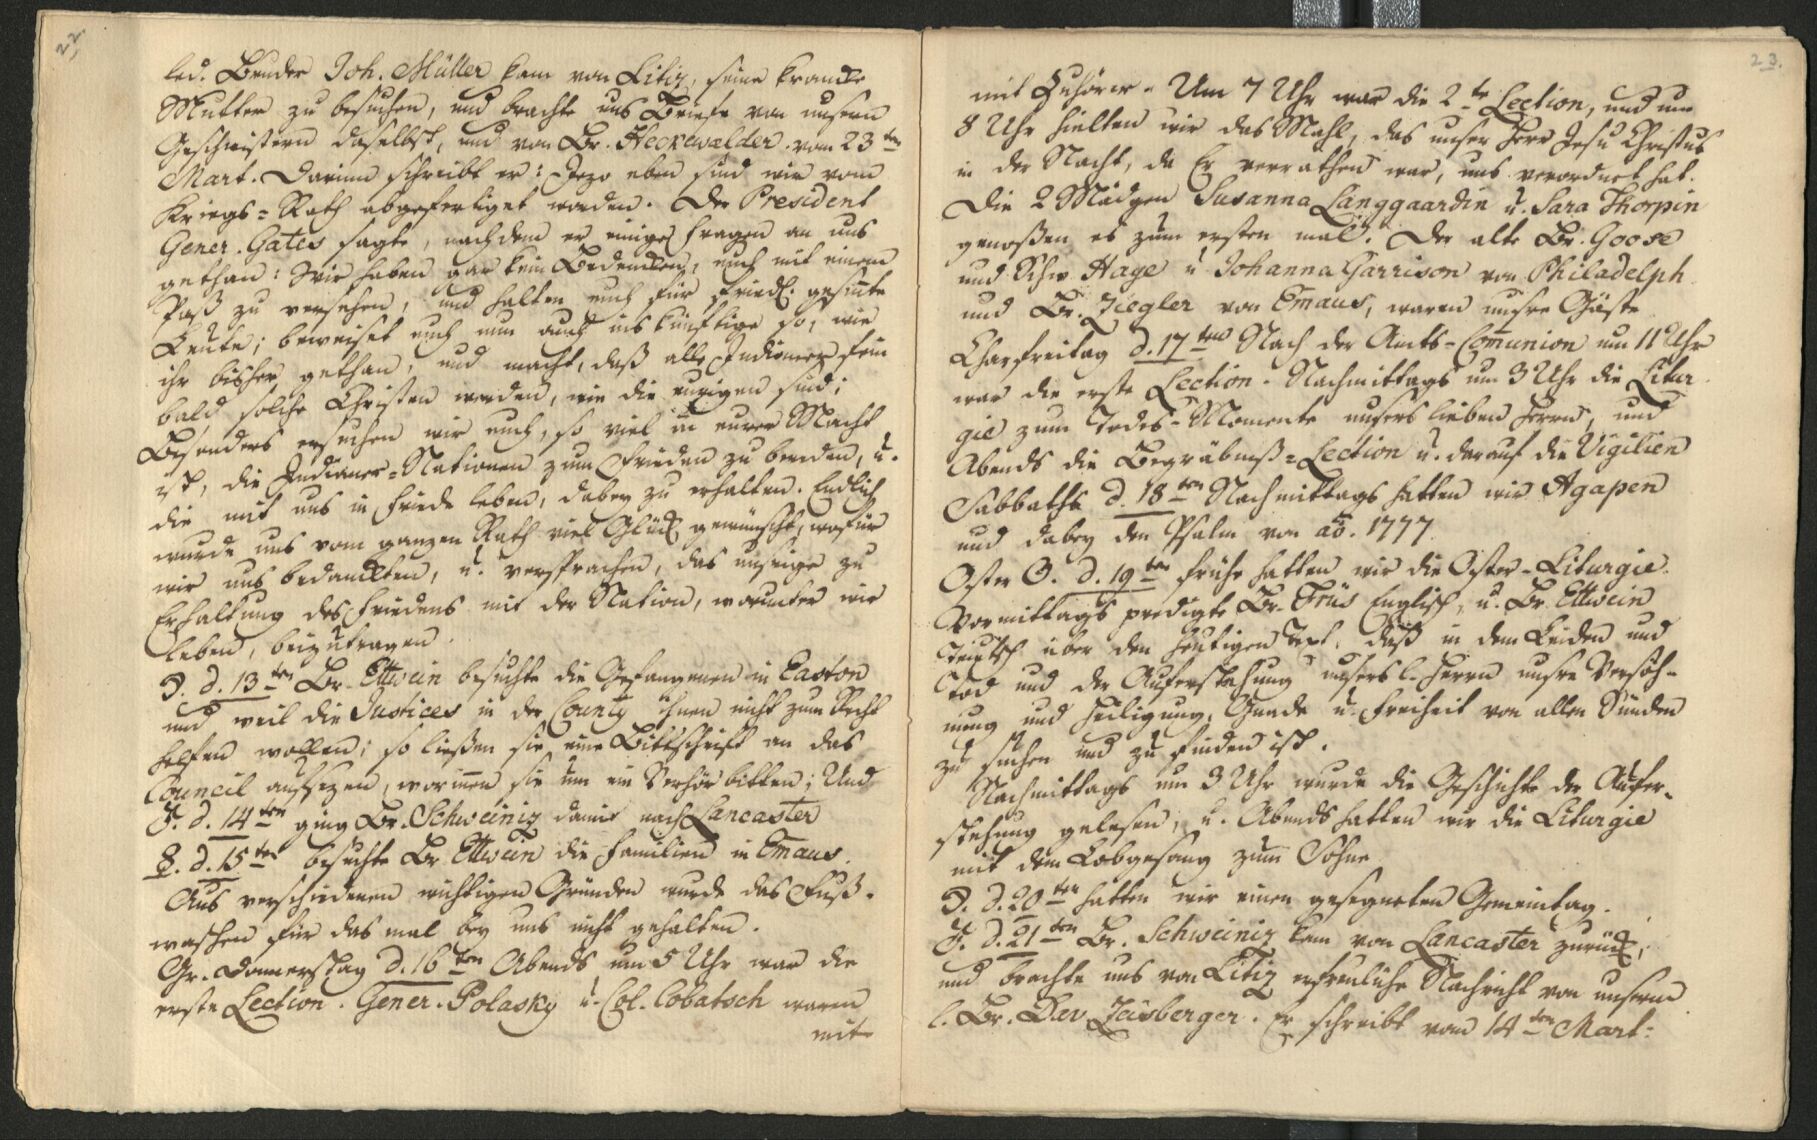 22.
led. Bruder Joh. Müller kam von Litiz, seine krancke
Mutter zu besuchen, und brachte uns Briefe von unsern
Geschwistern daselbst, und von Br. Heckewælder vom 23ten
Mart. Darinn schreibt er: Jezo eben sind wir vom
Kriegs=Rath abgefertiget worden. Der President
Gener. Gates sagte, nachdem er einige Fragen an uns
gethan: Wir haben gar kein Bedencken, euch mit einem
Paß zu versehen, und halten euch für friedl. gesinte
Leute; beweiset euch nun auch ins künftige so, wie
ihr bisher gethan, und macht, daß alle Indianer fein
bald solche Christen werden, wie die eurigen sind;
Besonders ersuchen wir euch, so viel in eurer Macht
ist, die Indianer=Nationen zum Frieden zu bereden, u.
die mit uns in Friede leben, dabey zu erhalten. Endlich
wurde uns vom ganzen Rath viel Glück gewünscht, wofür
wir uns bedanckten, u. versprachen, das unsrige zu
Erhaltung des Friedens mit der Nation, worunter wir
leben, beizutragen.
☽. d. 13ten Br. Ettwein besuchte die Gefangenen in Easton
und weil die Justices in der County ihnen nicht zum Recht
helfen wollen; so ließen sie eine Bittschrift an das
Council aufsezen, worinnen sie um ein Verhör bitten; Und
♂. d. 14ten ging Br. Schweiniz damit nach Lancaster
☿. d. 15ten besuchte Br. Ettwein die Familien in Emaus.
Aus verschiedenen wichtigen Gründen wurde das Fuß-
waschen für das mal bey uns nicht gehalten.
Gr. Donnerstag d. 16ten Abends um 5 Uhr war die
erste Lection. Gener. Polasky u. Col. Cobatsch waren
mit
23.
mit Zuhörer. Um 7 Uhr war die 2te Lection, und um
8 Uhr hielten wir das Mahl, das unser Herr Jesu Christus
in der Nacht, da Er verrathen war, uns verordnet hat.
Die 2 Mädgen Susanna Langgaardin u. Sara Thorpin
genoßen es zum ersten mal. Der alte Br. Goose
und Schw. Hage u. Johanna Garrison von Philadelph.
und Br. Ziegler von Emaus, waren unsre Gäste
Charfreitag d. 17ten Nach der Amts-Com̄union um 11 Uhr
war die erste Lection. Nachmittags um 3 Uhr die Litur
gie zum Todes-Momente unsers lieben Herrn, und
Abends die Begräbniß=Lection u. darauf die Vigilien
Sabbaths d. 18ten Nachmittags hatten wir Agapen
und dabey den Psalm von aō. 1777.
Oster ☉. d. 19ten frühe hatten wir die Oster-Liturgie.
Vormittags predigte Br. Früs Englisch, u. Br. Ettwein
Teutsch über den heutigen Text, daß in dem Leiden und
Tod und der Auferstehung unsers l. Herrn unsre Versöh-
nung und Heiligung, Gnade u. Freiheit von allen Sünden
zu suchen und zu finden ist.
Nachmittags um 3 Uhr wurde die Geschichte der Aufer-
stehung gelesen, u. Abends hatten wir die Liturgie
mit dem Lobgesang zum Sohne
☽. d. 20ten hatten wir einen gesegneten Gemeintag.
♂. d. 21ten Br. Schweiniz kam von Lancaster zurück,
und brachte uns von Litiz erfreuliche Nachricht von unserm
l. Br. Dav. Zeisberger. Er schreibt vom 14ten Mart: